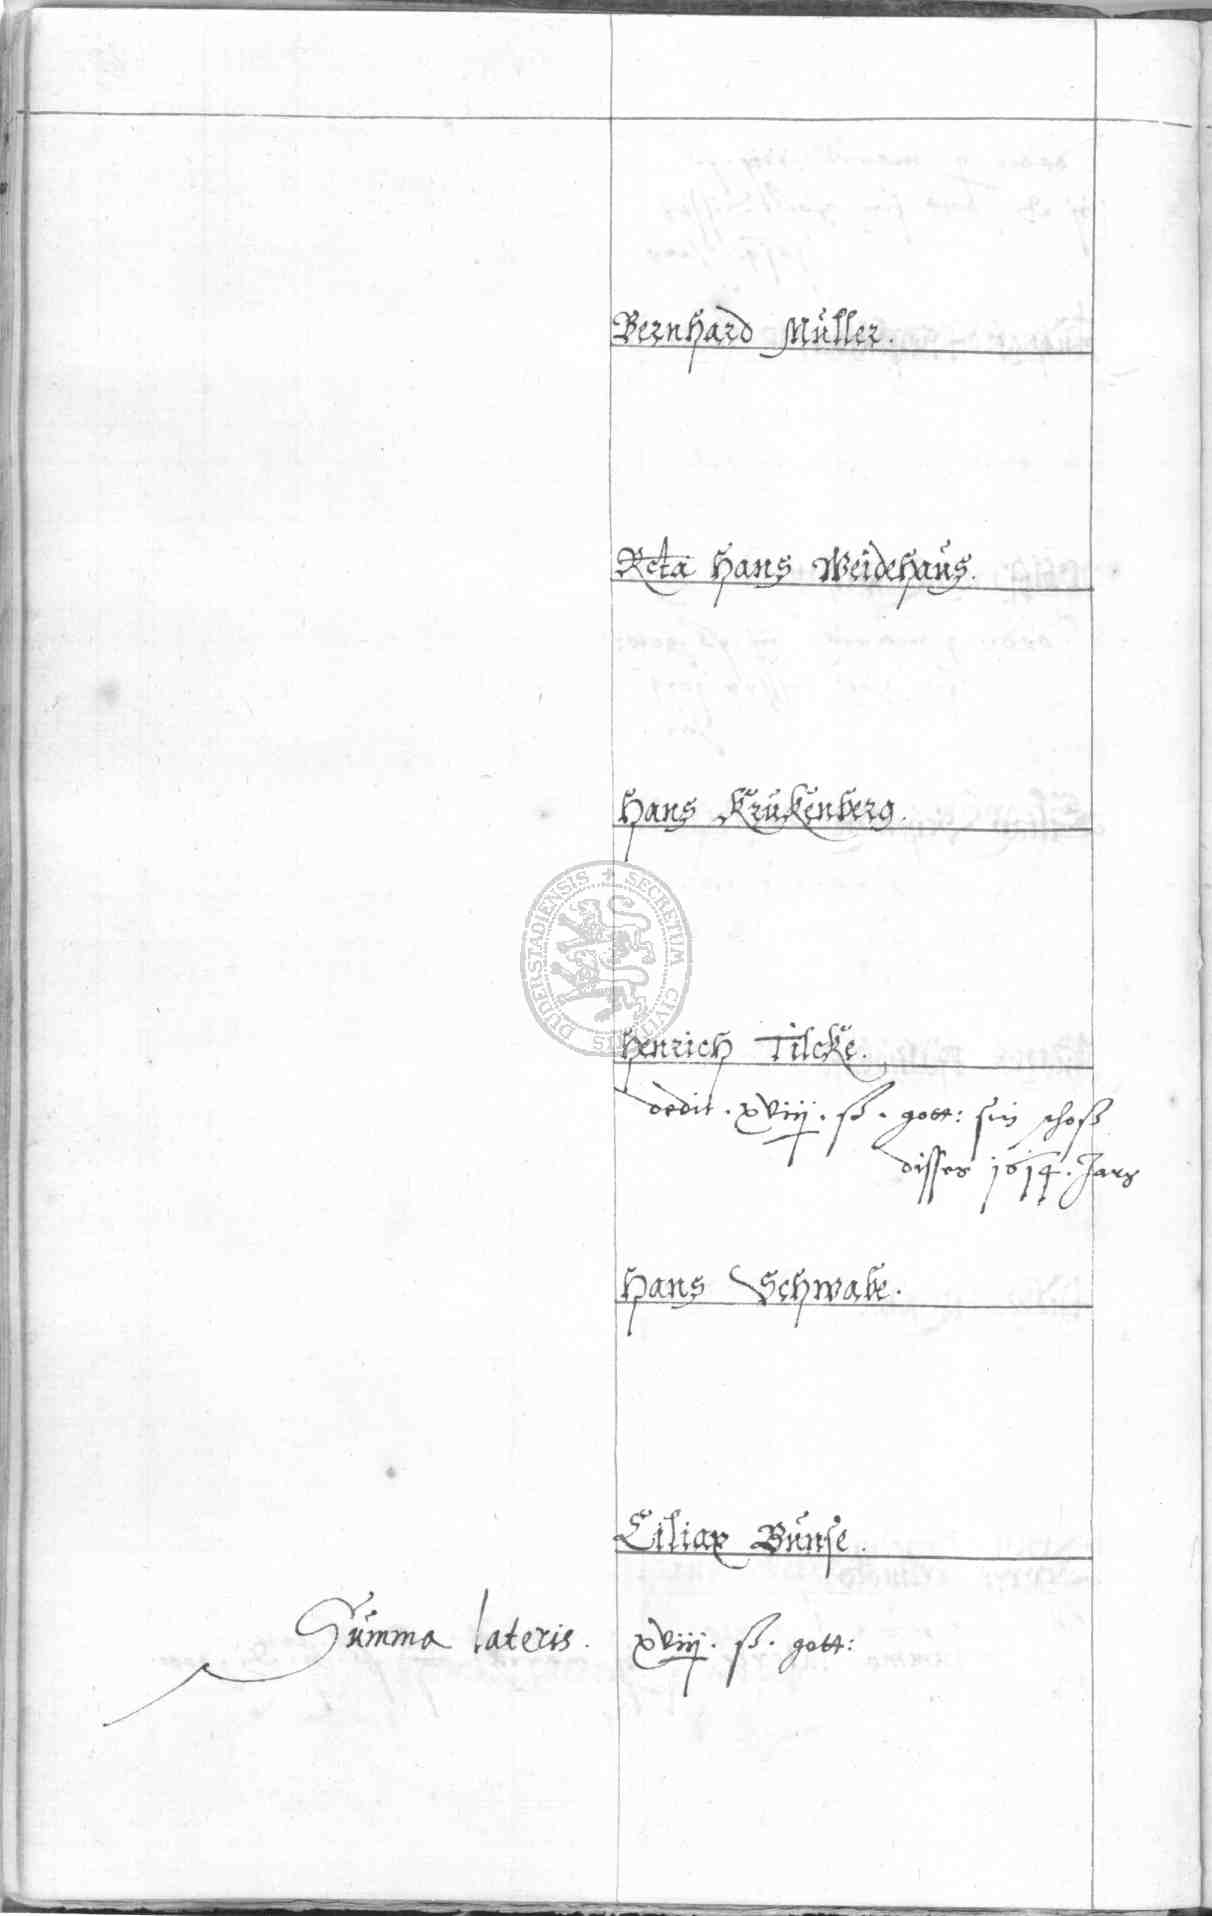 Bernhard Müller.
Rcta Hans Weidehaus.
Hans Krukenberg.
SECRETUM CIVITATIS DUDERSTADIENSIS
Henrich Tilcke.
dedit. xviij. ß. gott: sin schoß
disses 1614. Jars
Hans Schwabe.
Ciliax Bunse.
Summa lateris. xviij. ß. gott: